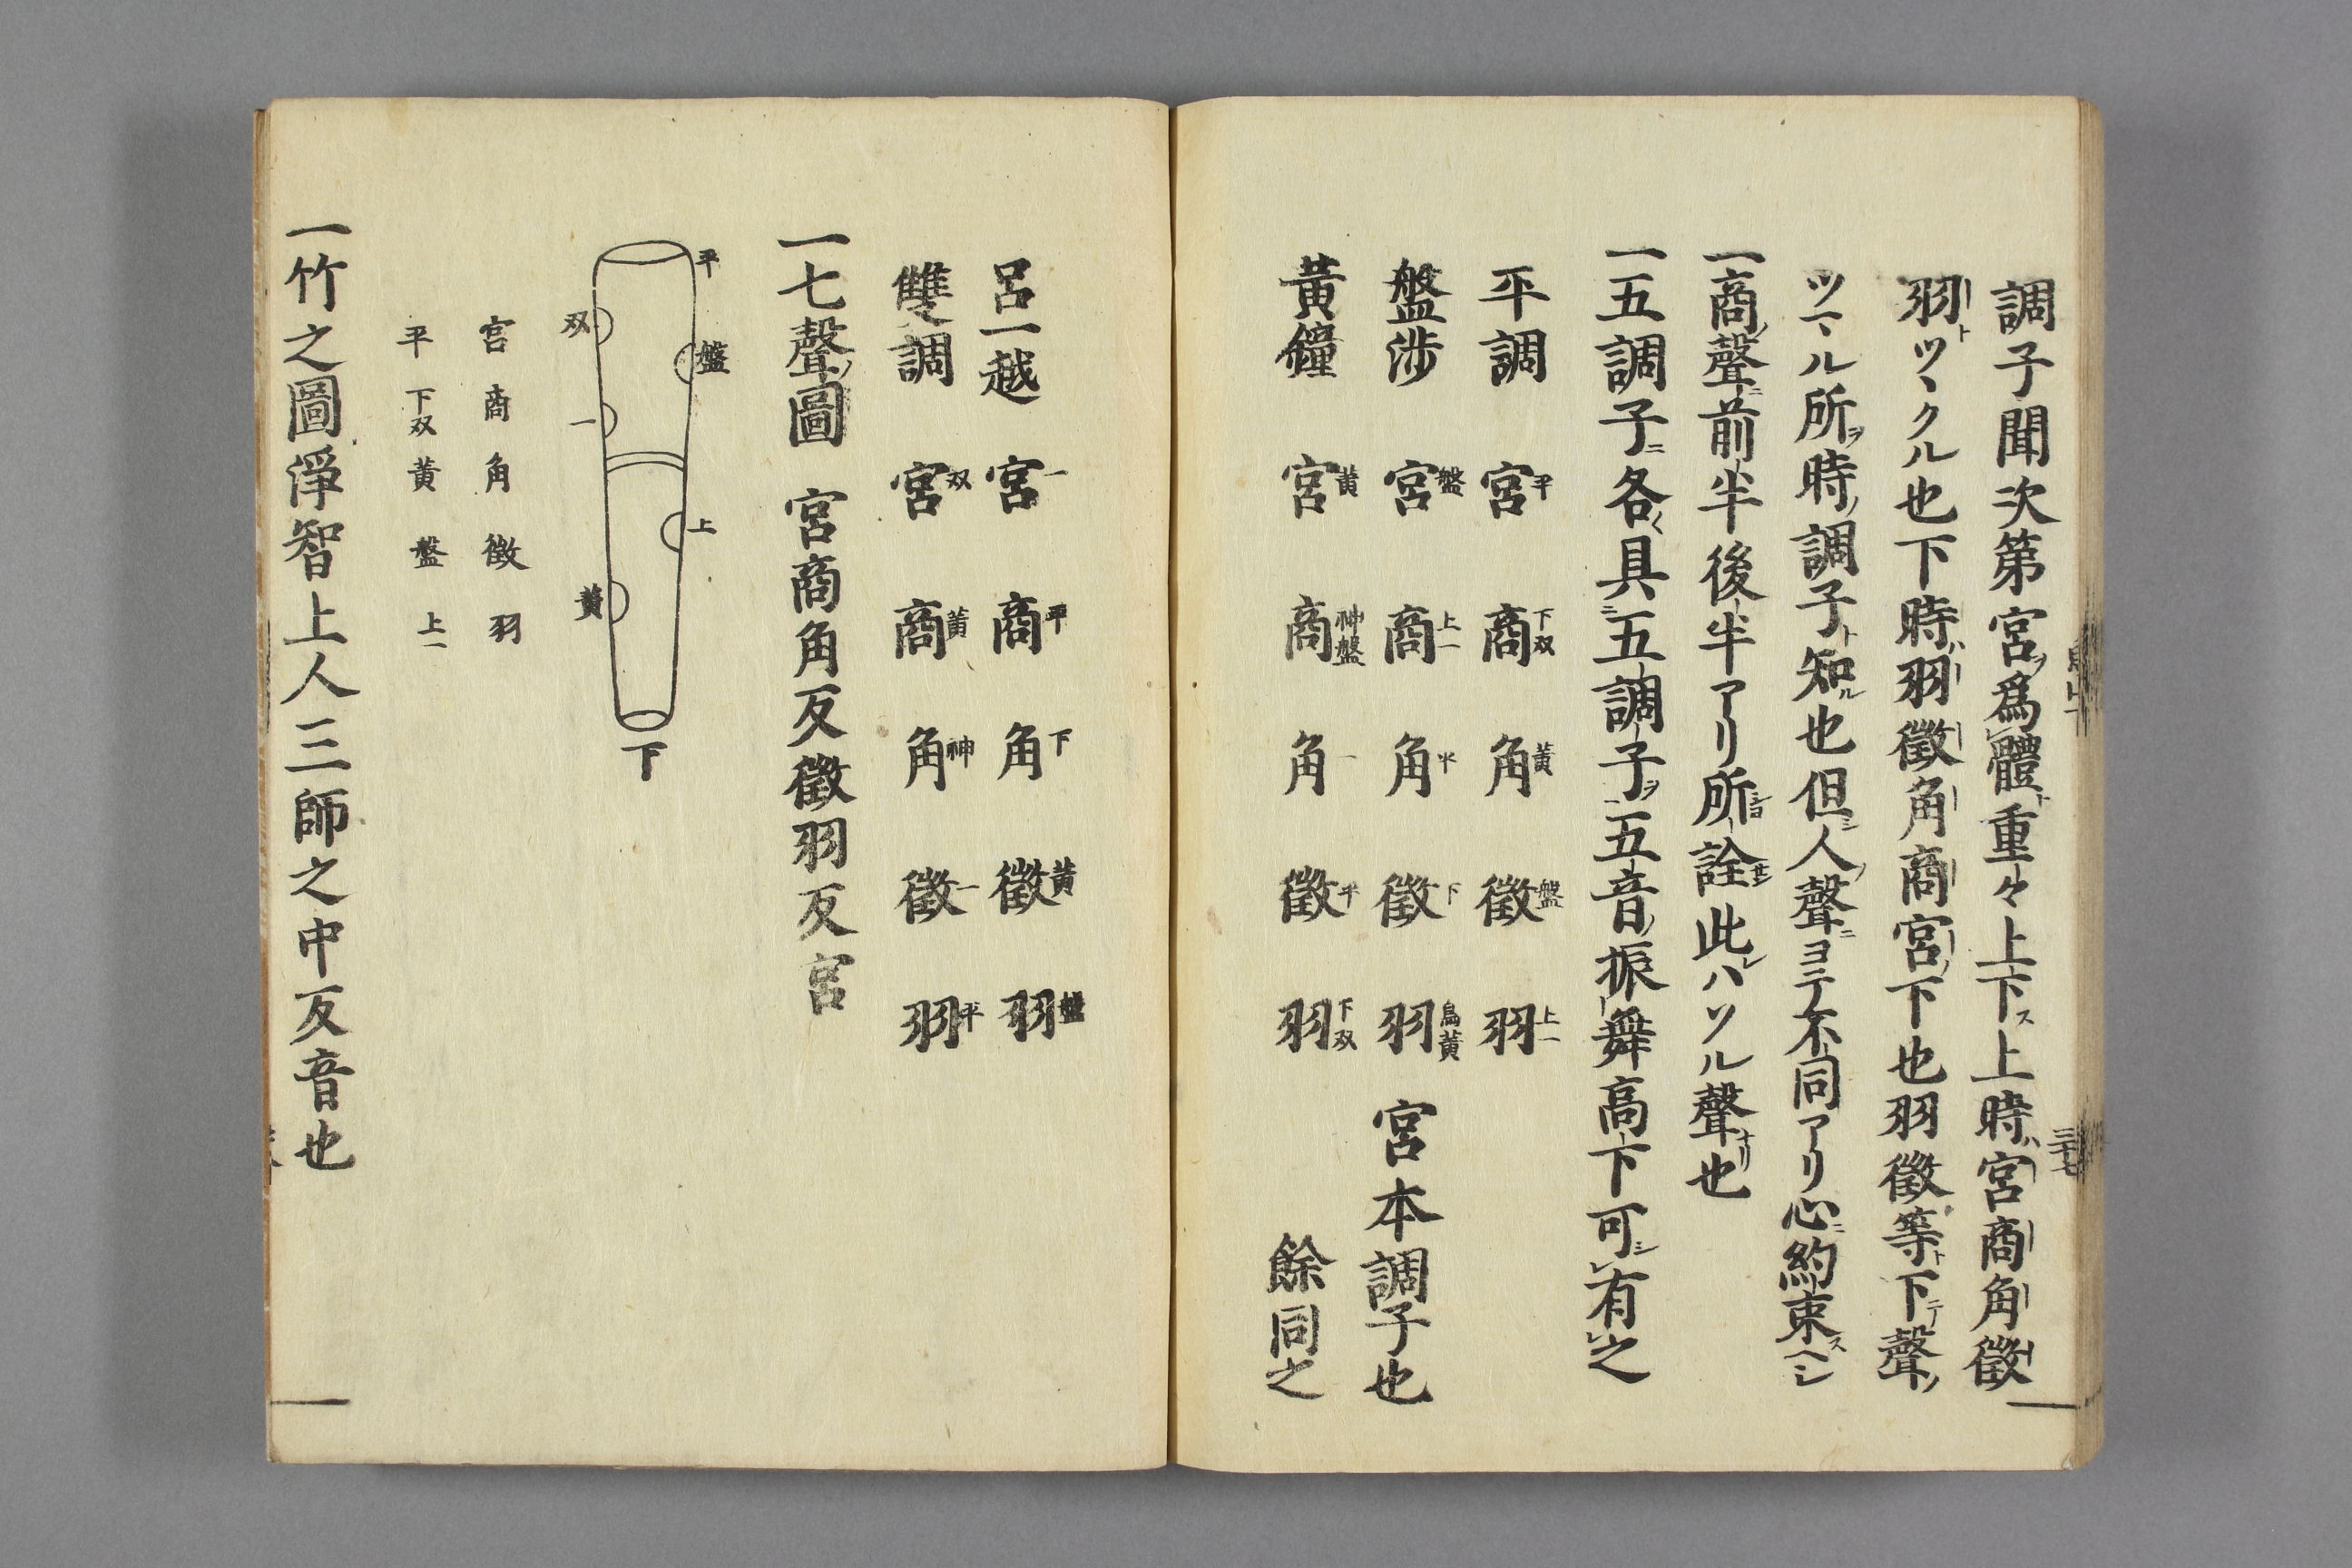 調子聞次第宮ヲ爲體ト重々上下ス上時ハ宮商角徵
羽トツヽクル也下時ハ羽徵角商宮ノ下也羽徵等ト下テ聲ノ
ツヽマル所ヲ時ノ調子ト知ル也但シ人ノ聲ニヨテ不同アリ心ニ約束スヘシ
一商ノ聲ニ前半後半アリ所詮此レハソル聲ナリ也
一五調子ニ各〱具ニ五調子ヲ五音ノ振舞高下可シ有之
平調 宮平 商下双 角黃 徵盤 羽上一
盤渉 宮盤 商上一 角平 徵下 羽鳥黃 宮本調子也
黃鐘 宮黃 商神盤 角一 徵平 羽下双 餘同之
三十七
呂一越 宮一 商平 角下 徵黃 羽盤
雙調 宮双 商黃 角神 徵一 羽平
一七聲ノ圖 宮商角反徵羽反宮
平
盤
上
双
一
黃
下
宮 商 角 徵 羽
平 下双 黃 盤 上一
一竹之圖淨智上人三師之中反音也